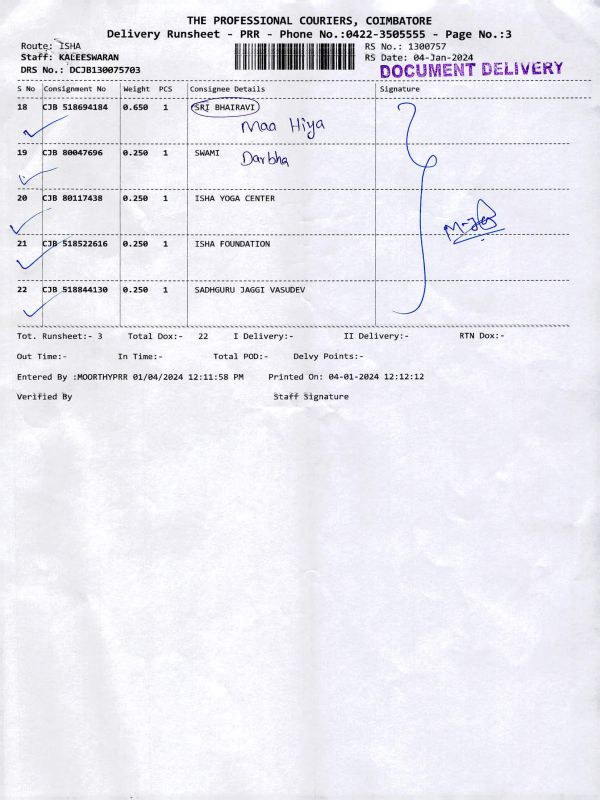 THE PROFESSIONAL COURIERS, COIMBATORE
Delivery Runsheet - PRR - Phone No.:0422-3505555 - Page No.:3
Route: ISHA RS No.: 1300757
Staff: KALEESWARAN RS Date: 04-Jan-2024
DRS No.: DCJB130075703 DOCUMENT DELIVERY
S No Consignment No Weight PCS Consignee Details Signature
18 CJB 518694184 0.650 1 SRI BHAIRAVI
Maa Hiya
19 CJB 80047696 0.250 1 SWAMI Darbha
20 CJB 80117438 0.250 1 ISHA YOGA CENTER
21 CJB 518522616 0.250 1 ISHA FOUNDATION
22 CJB 518844130 0.250 1 SADHGURU JAGGI VASUDEV
Tot. Runsheet:- 3 Total Dox:- 22 I Delivery:- II Delivery:- RTN Dox:-
Out Time:- In Time:- Total POD:- Delvy Points:-
Entered By :MOORTHYPRR 01/04/2024 12:11:58 PM Printed On: 04-01-2024 12:12:12
Verified By Staff Signature